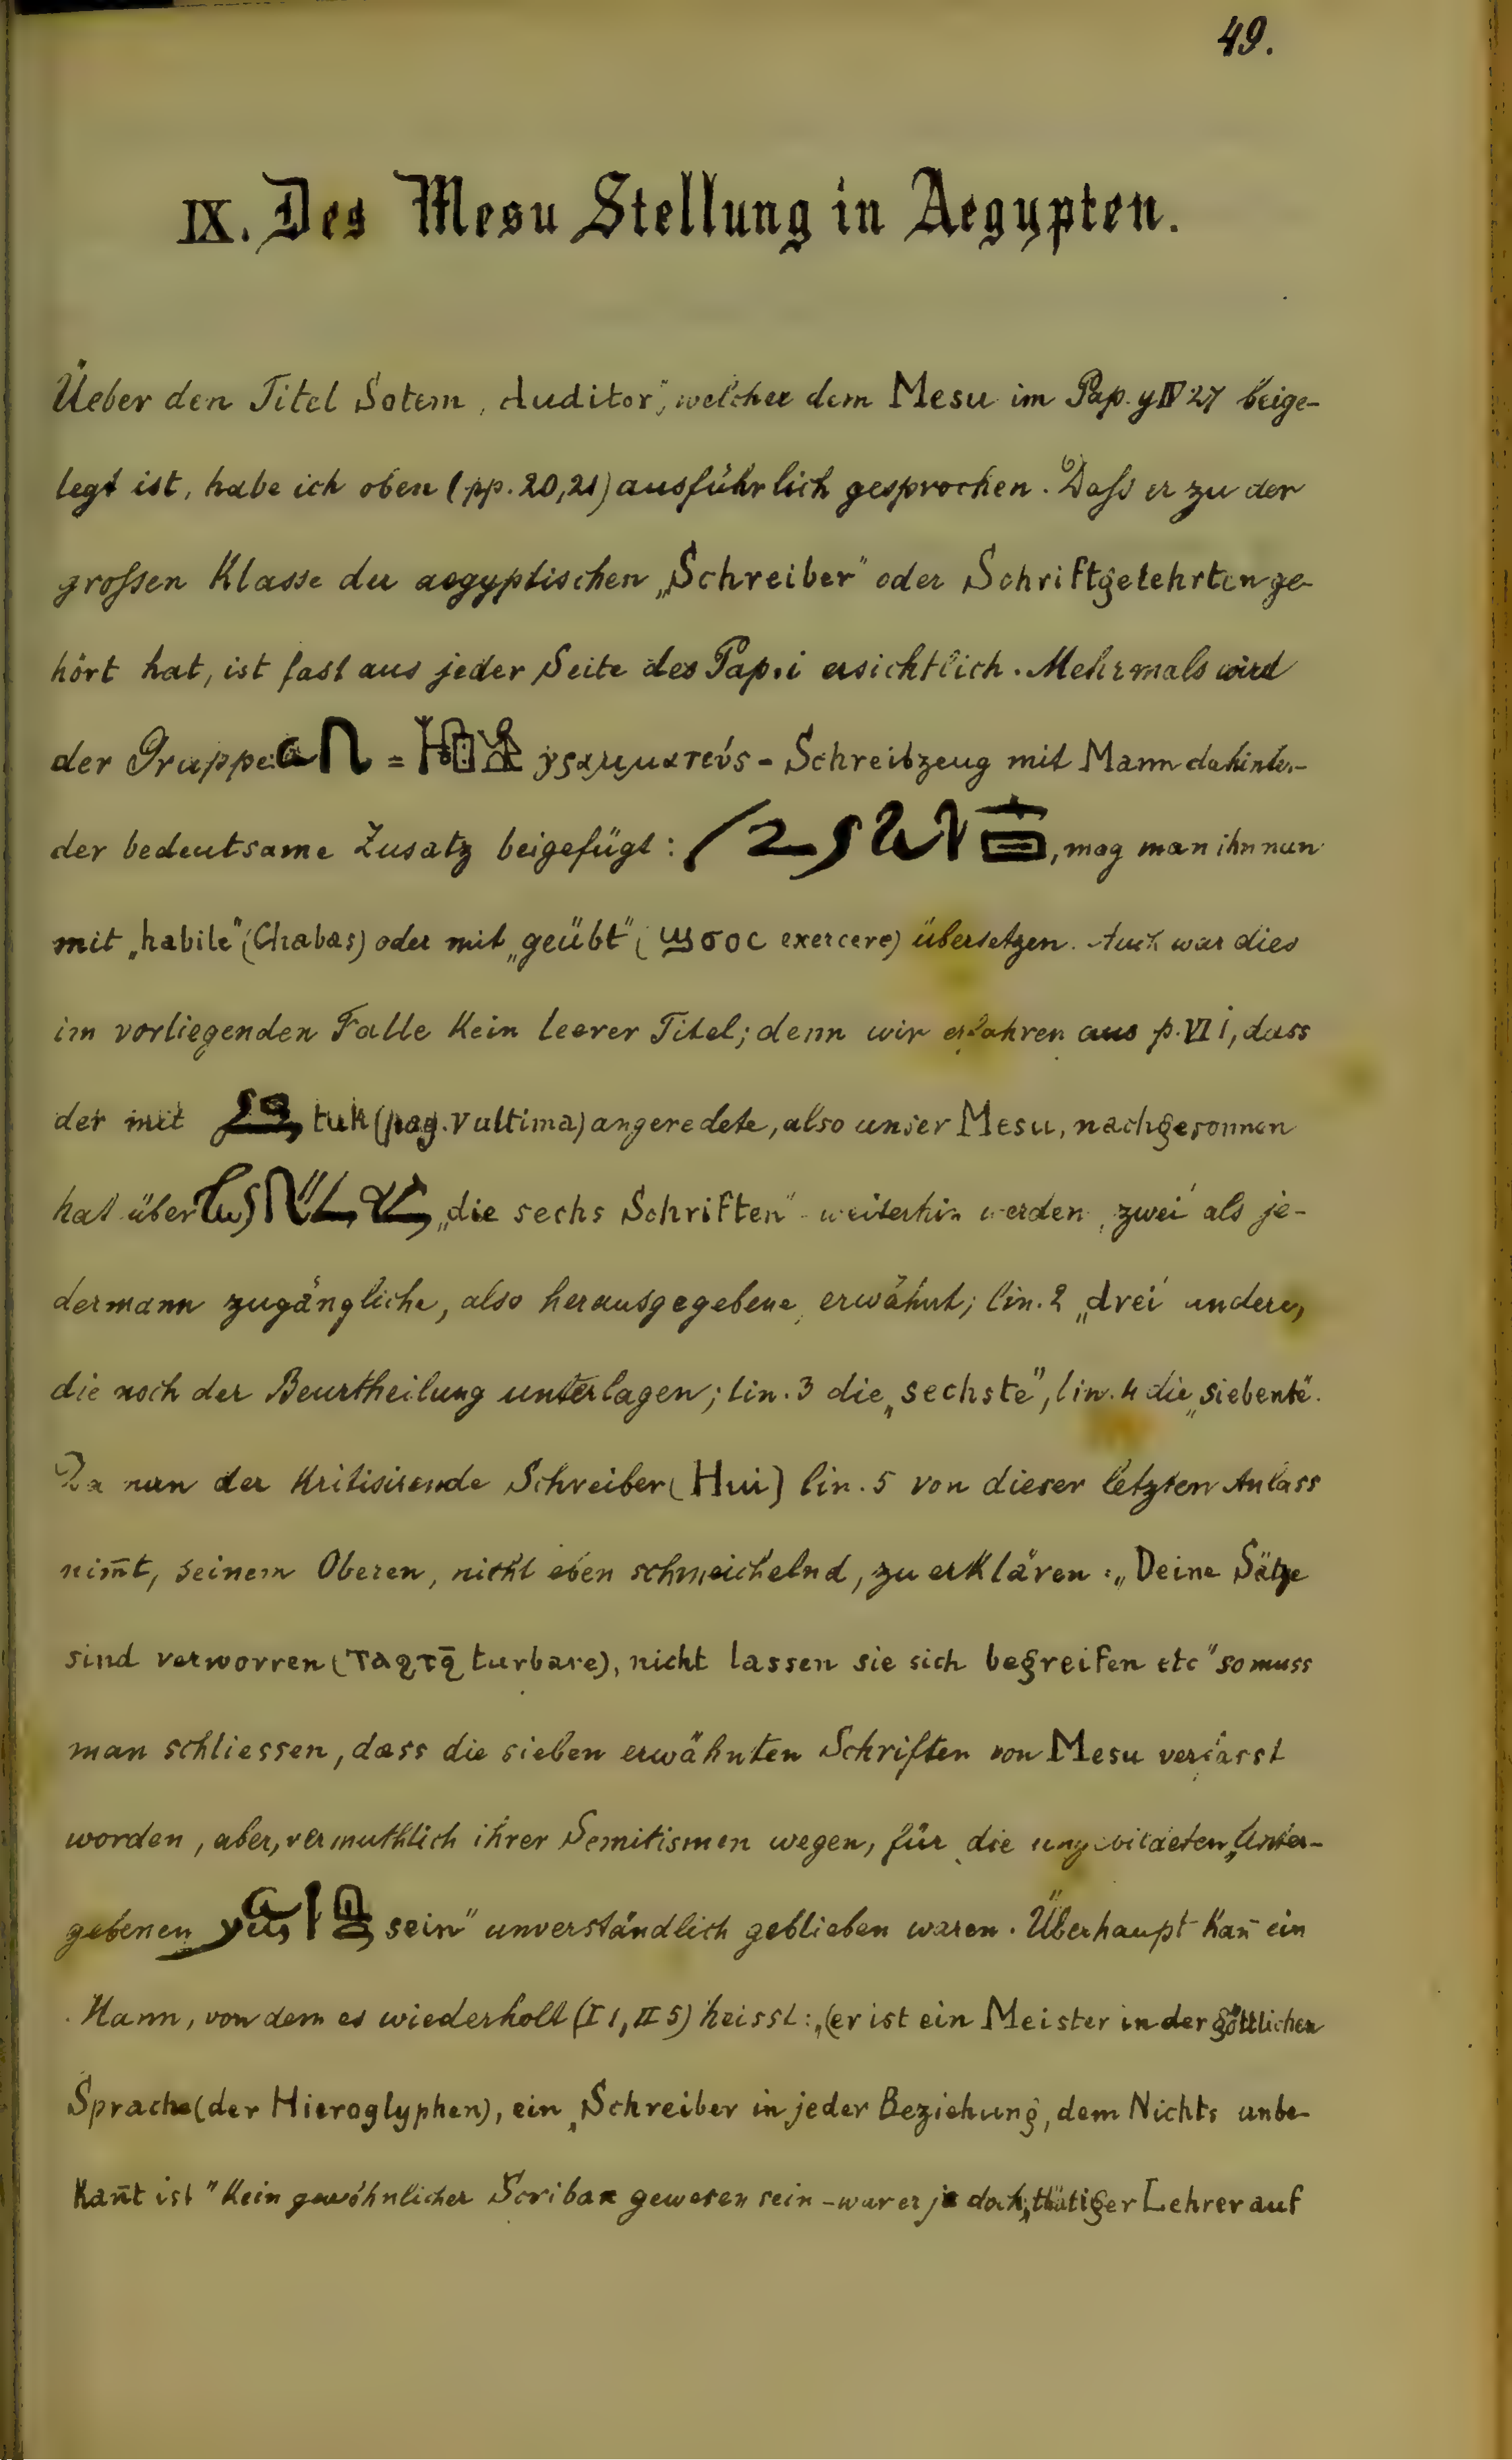 49.
IX. Des Mesu Stellung in Aegypten.
Üeber den Titel Sotem „Auditor“, welcher dem Mesu im Pap. y IV 27 beige-
legt ist, habe ich oben (pp. 20,21) ausführlich gesprochen. Daſs er zu der
groſsen Klasse der aegyptischen „Schreiber“ oder Schriftgelehrten ge-
hört hat, ist fast aus jeder Seite des Pap. i ersichtlich. Mehrmals wird
der Gruppe = γραμματεύς - Schreibzeug mit Mann dahinter-
der bedeutsame Zusatz beigefügt: , mag man ihn nun
mit „habile“ (Chabas) oder mit „geübt“ ( exercere) übersetzen. Auch war dies
im vorliegenden Falle Kein leerer Titel; denn wir erfahren aus p. VI i, dass
der mit tuk (pag. V ultima) angeredete, also unser Mesu, nachgesonnen
hat über „die sechs Schriften“ - weiterhin werden „zwei“ als je-
dermann zugängliche, also herausgegebene, erwähnt; lin. 2 „drei“ andere,
die noch der Beurtheilung unterlagen; lin. 3 die „sechste“, lin. 4 die „siebente“.
Da nun der Kritisirende Schreiber (Hui) lin. 5 von dieser letzten Anlass
nim̄t, seinem Oberen, nicht eben schmeichelnd, zu erklären: „Deine Sätze
sind verworren (ⲧⲁϩⲧϩ̄ turbare), nicht lassen sie sich begreifen etc“ so muss
man schliessen, dass die sieben erwähnten Schriften von Mesu verfasst
worden, aber, vermuthlich ihrer Semitismen wegen, für die ungebildeten „Unter-
gebenen sein“ unverständlich geblieben waren. Überhaupt Kan̄ ein
Mann, von dem es wiederholt (I 1, II 5) heisst: „(er ist ein Meister in der göttlichen
Sprache (der Hieroglyphen), ein „Schreiber in jeder Beziehung, dem Nichts unbe-
Kan̄t ist“ Kein gewöhnlicher Scribax gewesen sein - war er ja doch „thätiger Lehrer auf